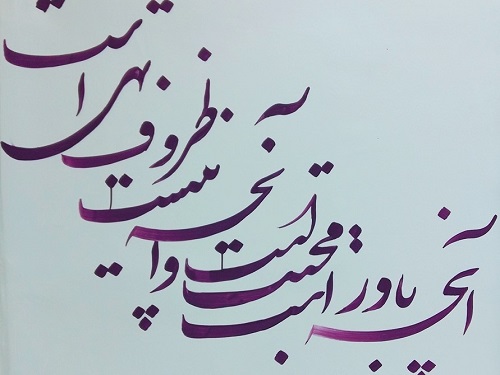 آنچه باور است محبت است و آنچه نیست ظروف تهی است